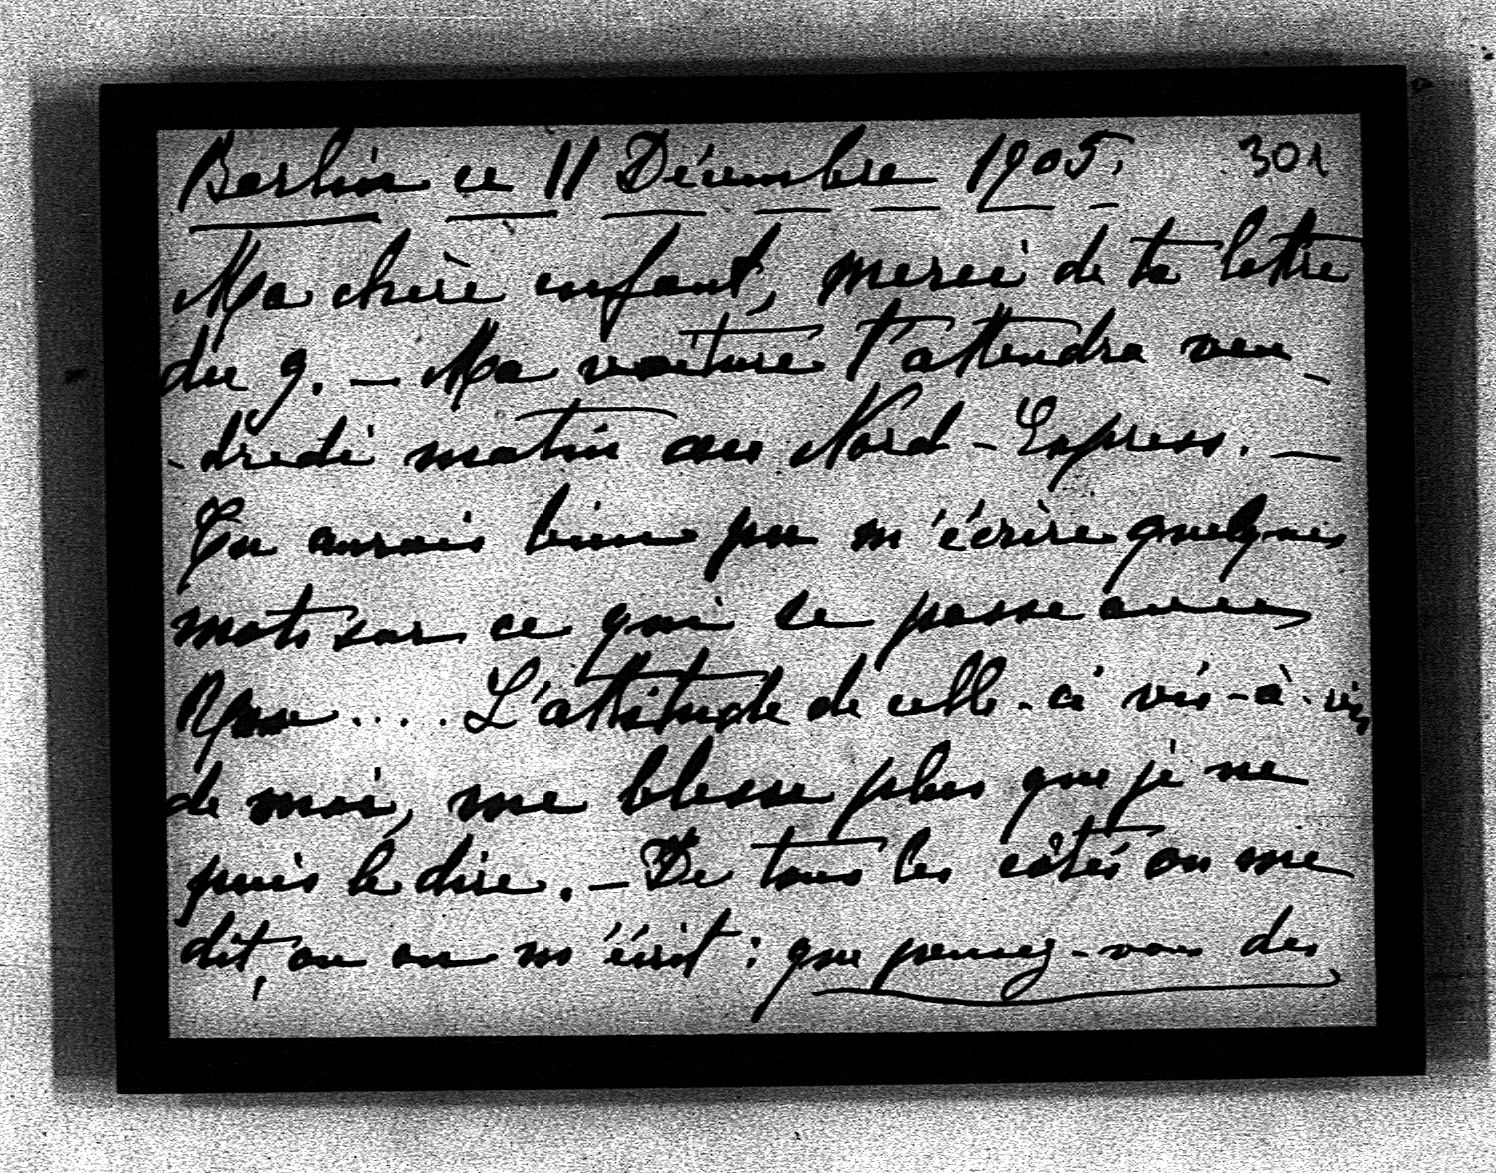 Berlin ce 11 Décembre 1905. 301
Ma chère enfant, merci de ta lettre
du 9. — Ma voiture t'attendra ven-
-dredi matin au Nord-Express. —
Tu aurais bien pu m'écrire quelques
mots sur ce qui se passe avec
.... L'attitude de celle-ci vis-à-vis
de moi, me blesse plus que je ne
puis le dire. — De tous les côtés on me
dit, ou on m'écrit : que pensez-vous des